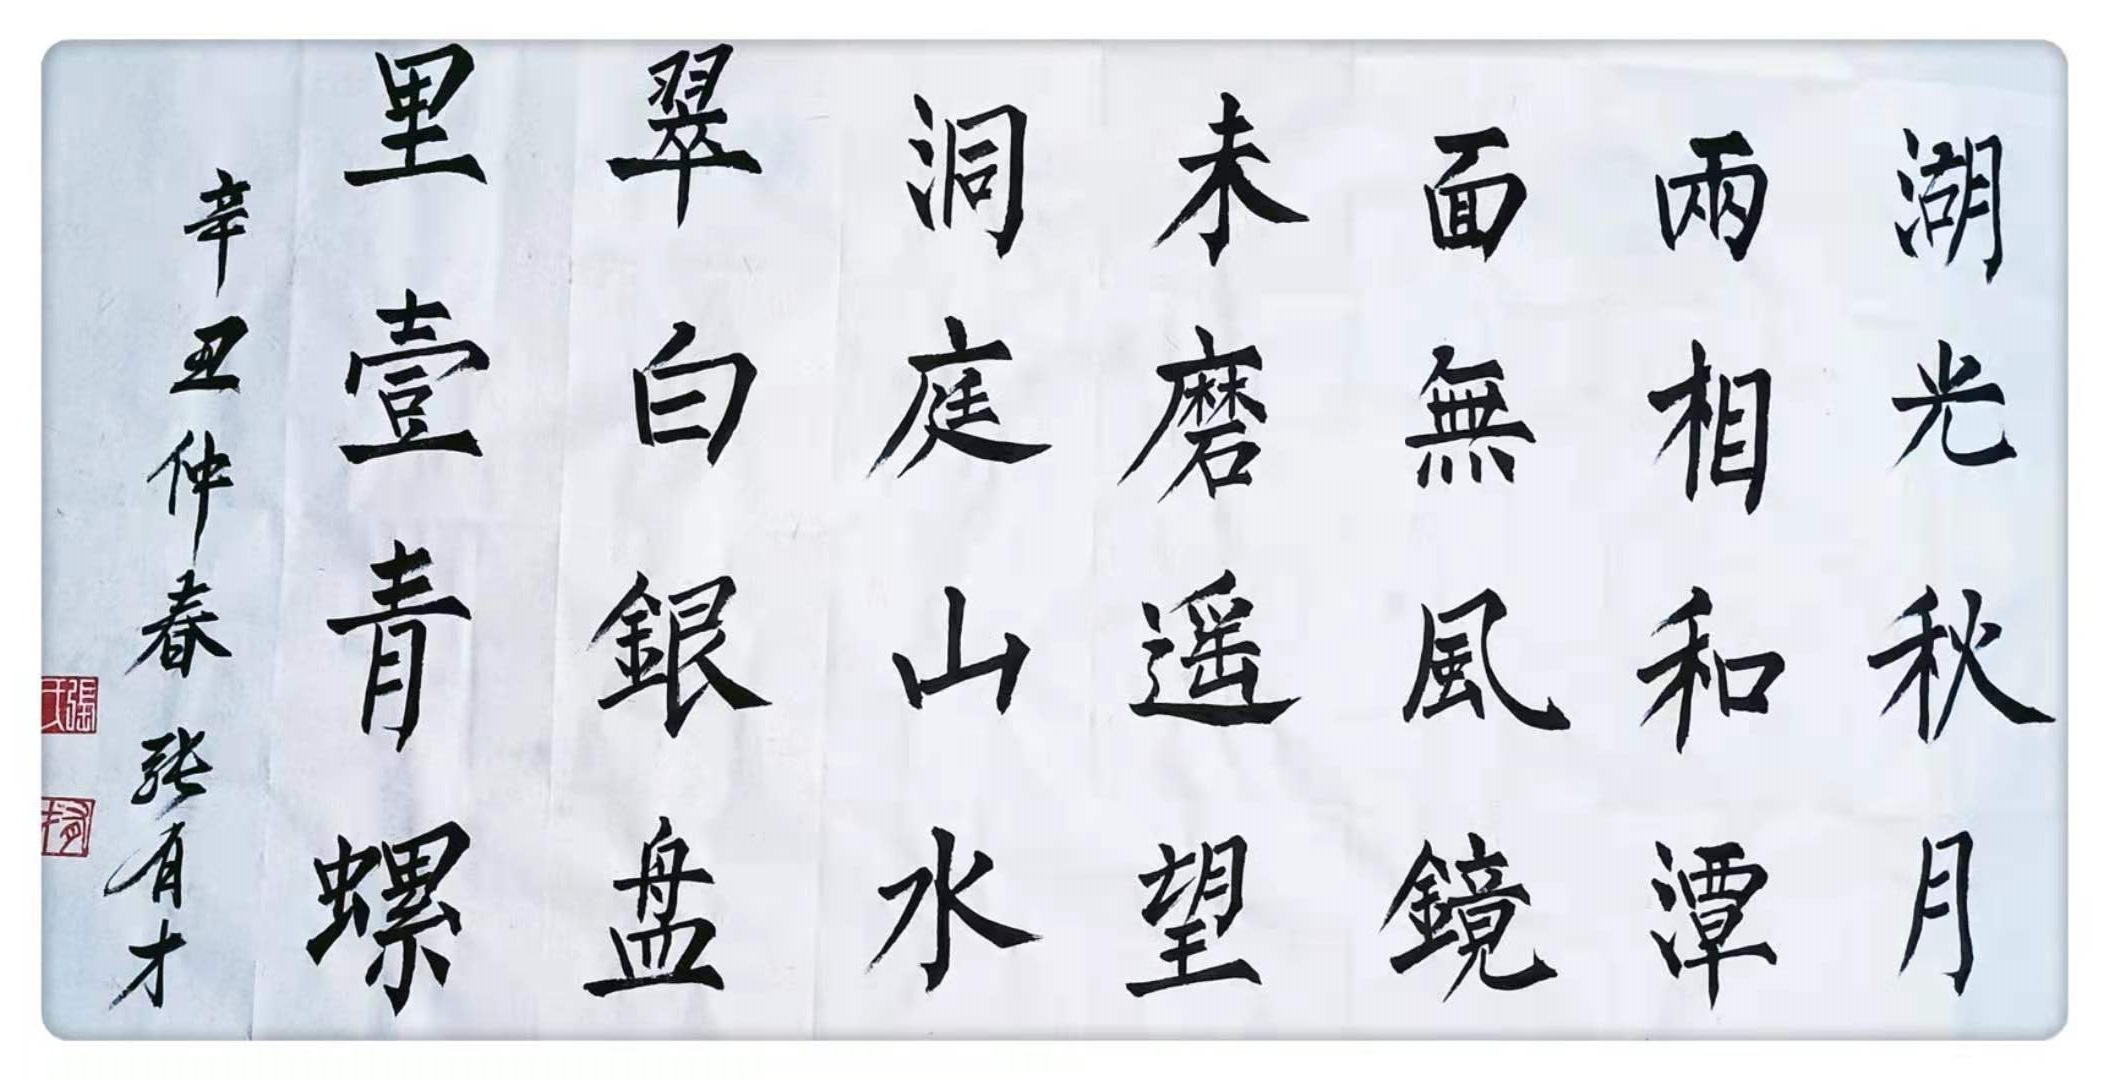 湖光秋月
兩相和潭
面無風鏡
未磨遥望
洞庭山水
翠白銀盤
里壹青螺
辛丑仲春張有才
張